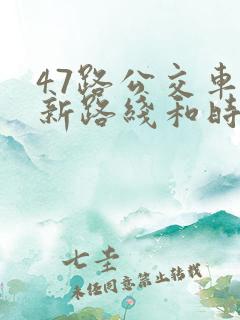 47路公交车
新路线和时
七圭
未经同意禁止转载